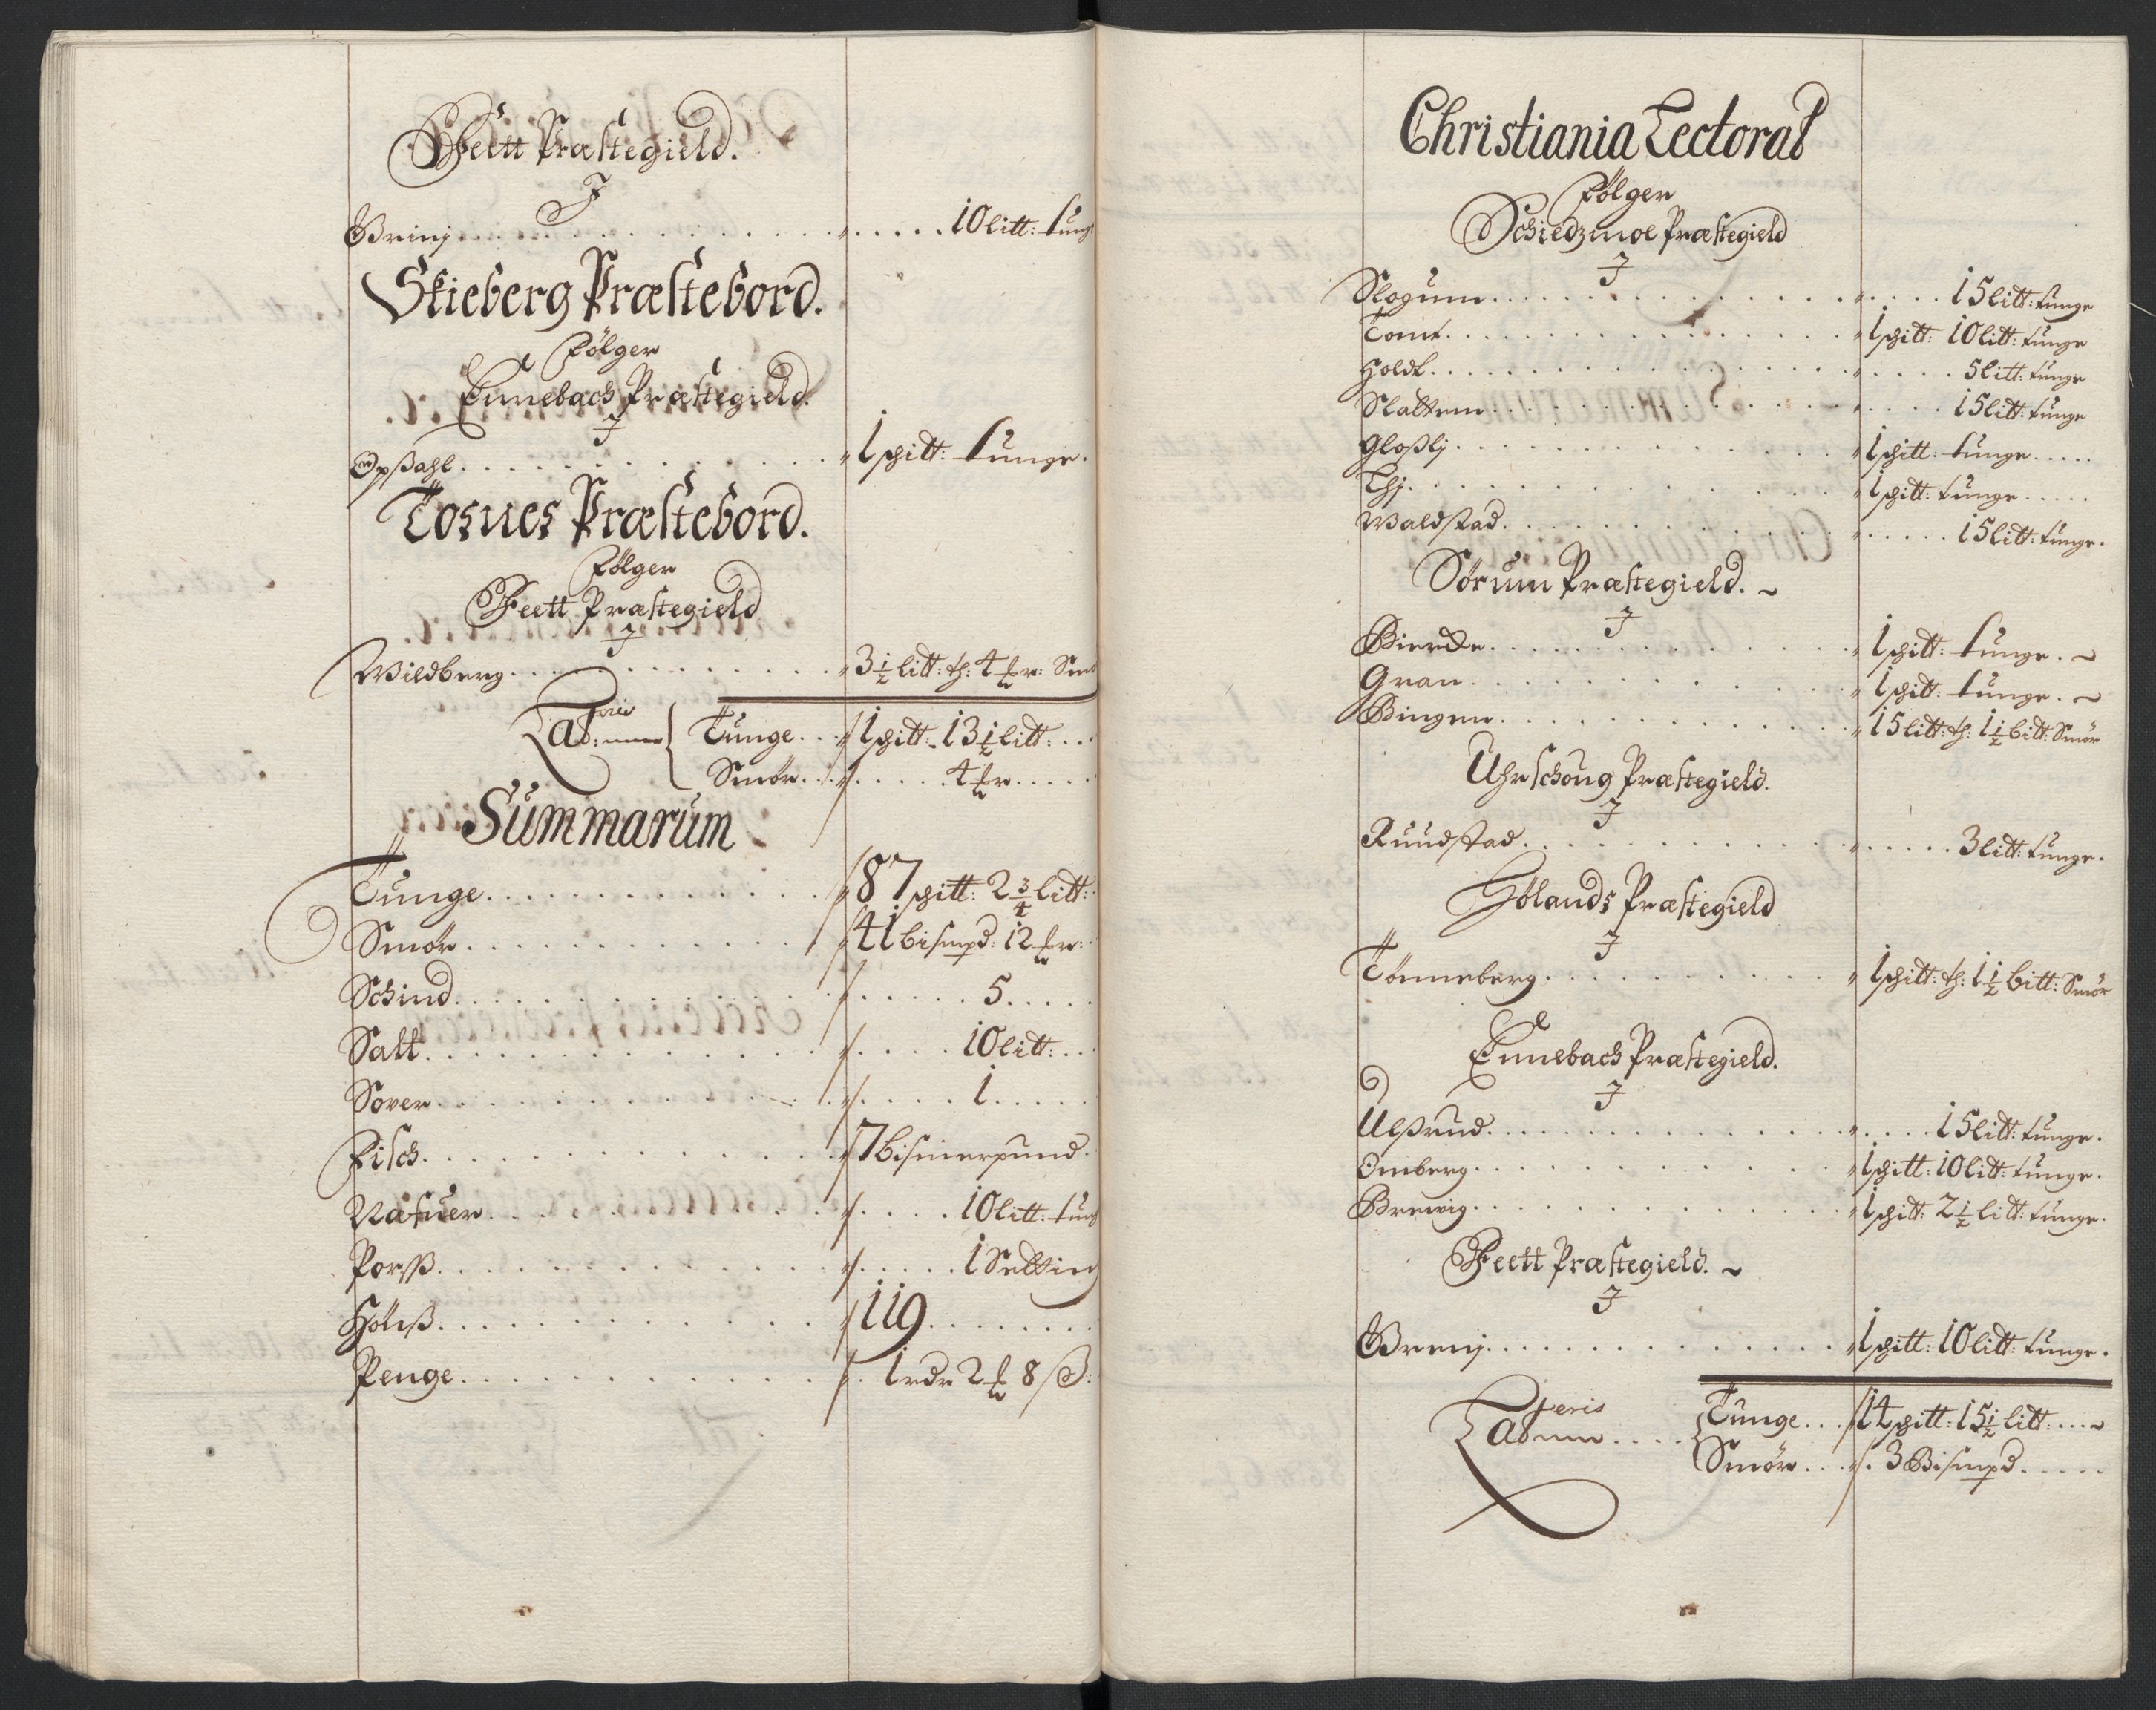 Feett Præstegield.
J
Brinj . . . . . 10 litt: tung
Skieberg Præstebord.
Fölger
Ennebach Præstegield.
J
Opsahl . . . . . 1 schitt: tunge.
Tosnes Præstebord.
Fölger
Feett Præstegield
J
Wildberg . . . . . 3½ litt: th: 4 Smör
Lateris Tunge . . . 1 schitt: 13½ litt: . . .
Smör . . . . 4 . . . . .
Summarum
Tunge . . . . . 87 schitt: 2¾ litt:
Smör . . . . . 41 bismpd: 12
Schind . . . . . 5 . . . . .
Salt . . . . . 10 litt: . . .
Sover . . . . . 1 . . . . .
Fisch . . . . . 7 bismerpund.
Næfuer . . . . . 10 litt: tung
Porss . . . . . 1 Setting
Höness . . . . . 119 . . . . .
Penge . . . . . 1 rdr 2 8 ß:
Christiania Lectorat
Fölger
Schiedzmoe Præstegield
J
Slogum . . . . . 15 litt: tunge
Tomt . . . . . 1 schitt: 10 litt: tunge
Holdt . . . . . 5 litt: tunge
Slattem . . . . . 15 litt: tunge
Glosslj . . . . . 1 schitt: tunge . . . . .
Lhj . . . . . 1 schitt: tunge . . . . .
Waldstad . . . . . 15 litt: tunge.
Sörum Præstegield.
J
Bierche . . . . . 1 schitt: tunge.
Gran . . . . . 1 schitt: tunge.
Bingen . . . . . 15 litt: th: 1½ bitt: Smör
Uhrschoug Præstegield.
J
Ruudstad . . . . . 3 litt: tunge.
Hölands Præstegield
J
Tönneberg . . . . . 1 schitt: th: 1½ bitt: Smör
Ennebach Præstegield.
J
Ulssrud . . . . . 15 litt: tunge.
Omberg . . . . . 1 schitt: 10 litt: tunge.
Brewig . . . . . 1 schitt: 2½ litt: tunge.
Feett Præstegield.
J
Brenj . . . . . 1 schitt: 10 litt: tunge.
Lateris Tunge . . . 14 schitt: 15½ litt: . . .
Smör . . . 3 Bismpd . . . . .